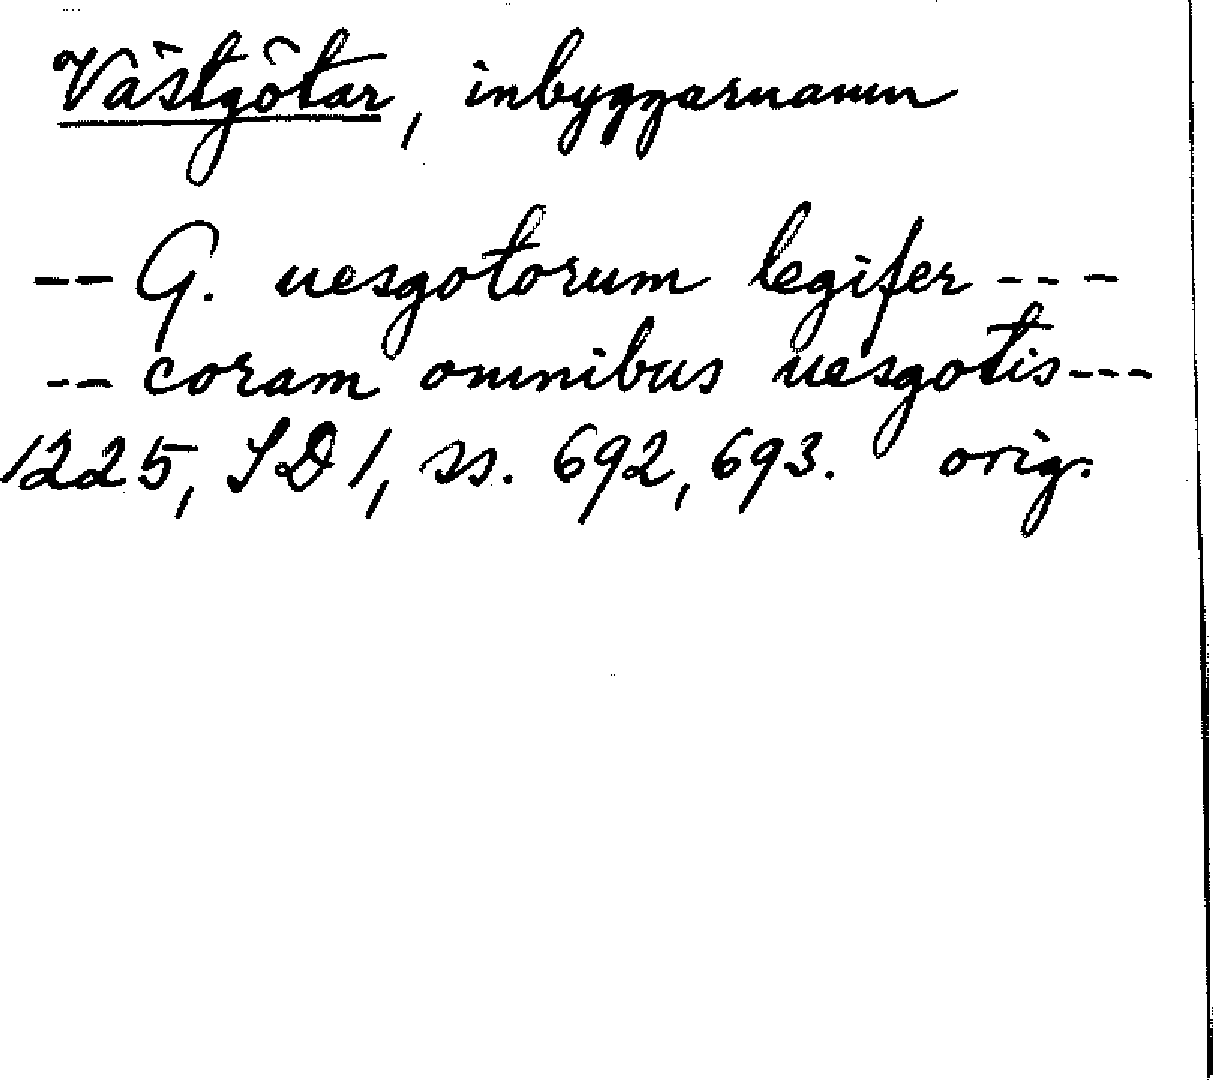 Västgötar, inbyggarnamn
-- G. uesgotorum legifer ---
-- coram omnibus uesgotis---
1225, SD 1, ss. 692, 693. orig.